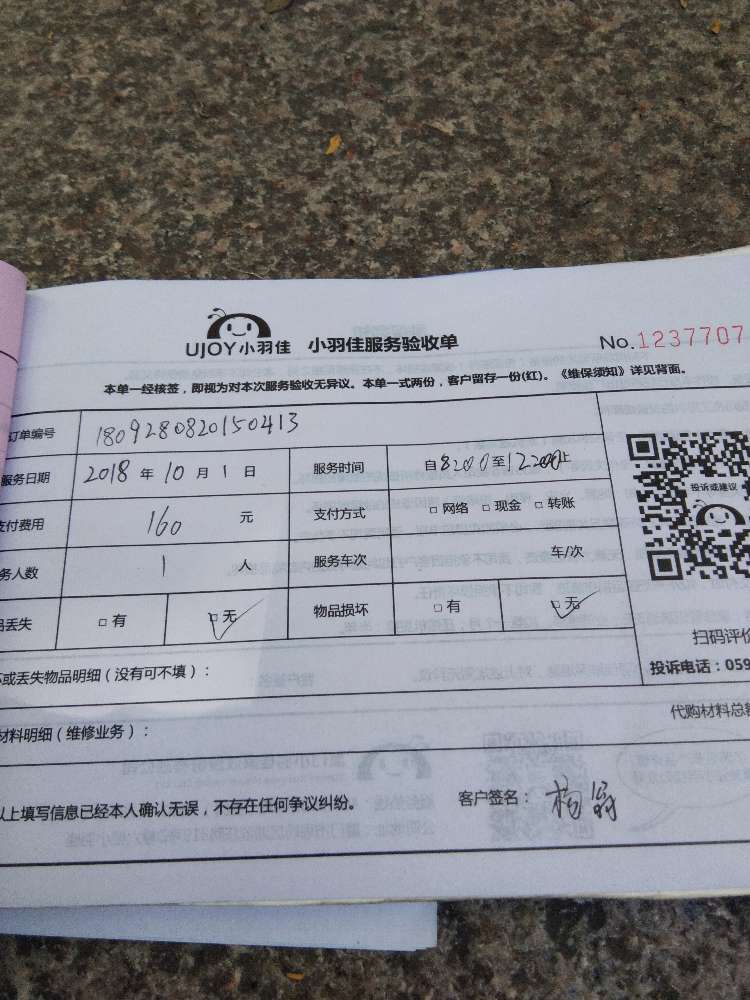 UJOY小羽佳 小羽佳服务验收单 No.1237707
本单一经核签，即视为对本次服务验收无异议。本单一式两份，客户留存一份(红)。《维保须知》详见背面。
订单编号 1809280820150413
服务日期 2018 年 10 月 1 日 服务时间 自8:00至12:00止
支付费用 160 元 支付方式 □网络 □现金 □转账
务人数 1 人 服务车次 车/次
品丢失 □有 □无 物品损坏 □有 □无
投诉或建议
扫码评价
坏或丢失物品明细（没有可不填）： 投诉电话：059
材料明细（维修业务）： 代购材料总额
以上填写信息已经本人确认无误，不存在任何争议纠纷。 客户签名： 杨